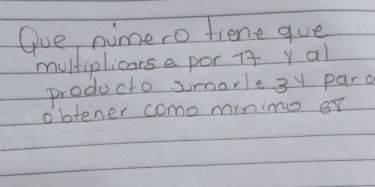 Que número tiene que
multiplicarse por 17 y al
producto sumarle 34 para
obtener como minimo 68